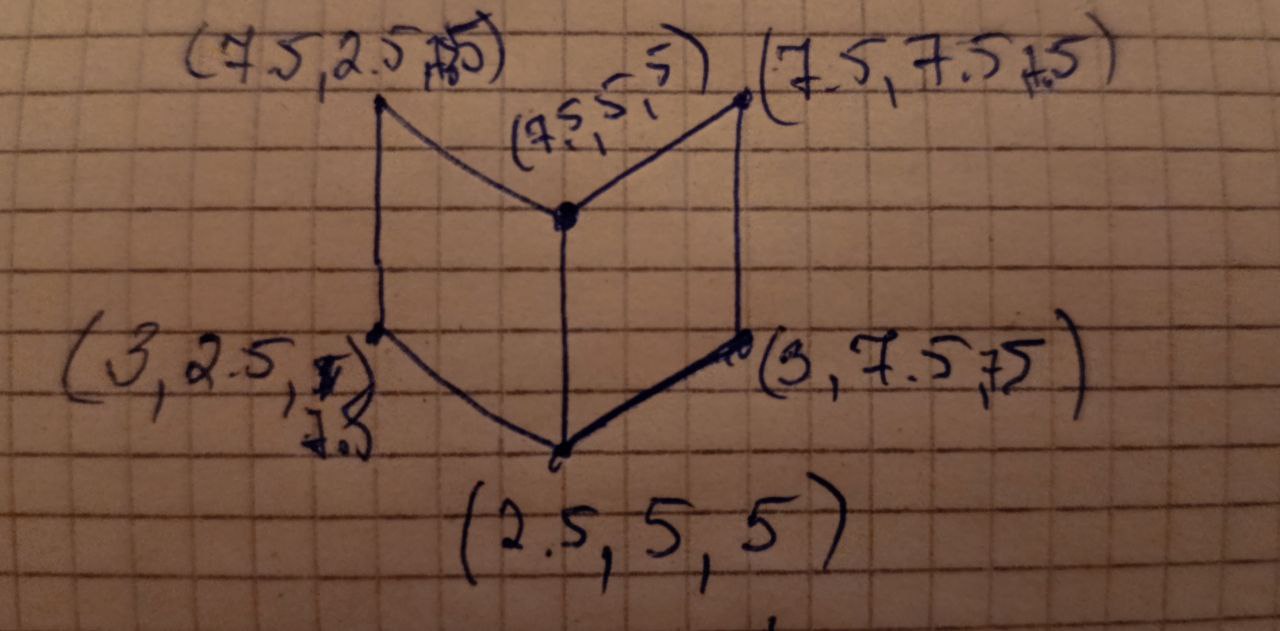 (7.5, 2.5, 7.5)
(7.5, 5, 5)
(7.5, 7.5, 7.5)
(3, 2.5,
7.5)
(3, 7.5, 7.5)
(2.5, 5, 5)